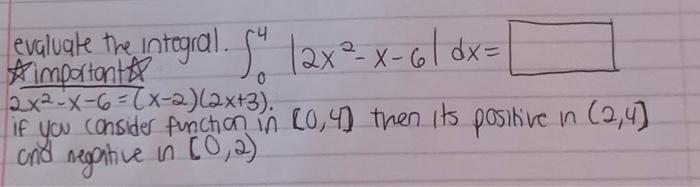 evaluate the integral. ∫₀⁴ |2x² - x - 6| dx =
☆important☆
2x² - x - 6 = (x-2)(2x+3).
if you consider function in [0,4] then its positive in (2,4]
and negative in [0,2)